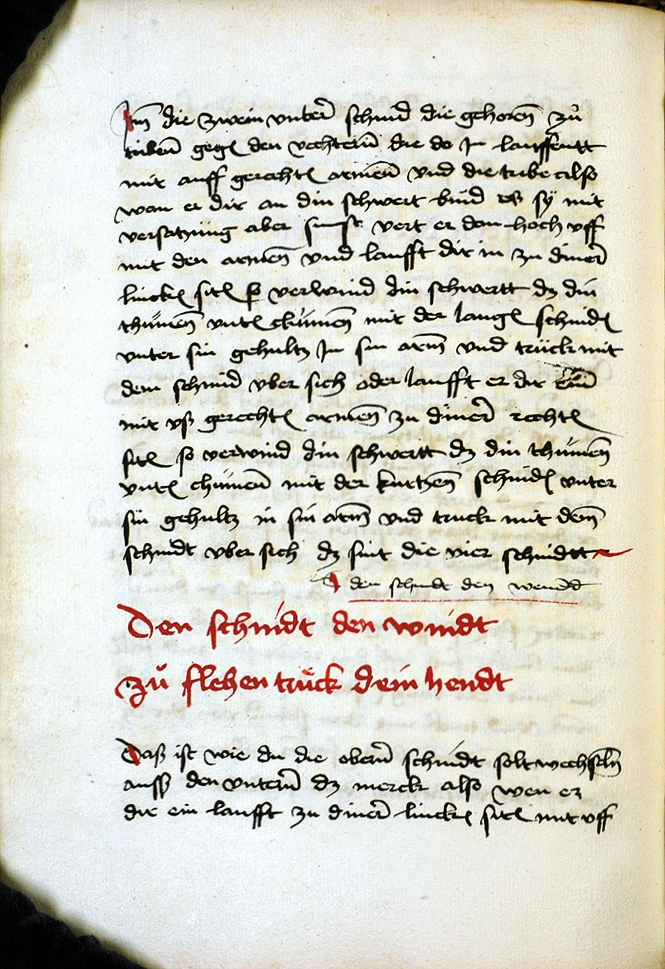 Im die zwein unterñ schnid die gehoreñ zů
triben gege den vechtern die do In lauffentt
mit auff gerachte armen vnd die tribe also
wan er dir an din schwert bind es sy mit
versatzung aber sunst vert er dan hoch vff
mit den armen vnd laufft dir in zu diner
lincke site so verwind din schwertt dz din
thumen vnte kumen mit der lange schnide
unter sin gehultz In sin arm vnd trück mit
dem schnid vber sich oder laufft er dir ein
mit vff gerechte armen zu diner rechte
site so verwind din schwertt dz din thumen
vnte chumen mit der kurtzen schnide unter
sin gehultz in sin arm vnd truck mit dem
schnidt vber sich dz sint die vier schnidtt
den schnidt den wendt
Den schnidt den windt
zů flehen trück dein hendt
Daß ist wie du die obern schnidt solt wechseln
auß den untern dz merck also wen er
dir ein laufft zu diner lincke site mit vff